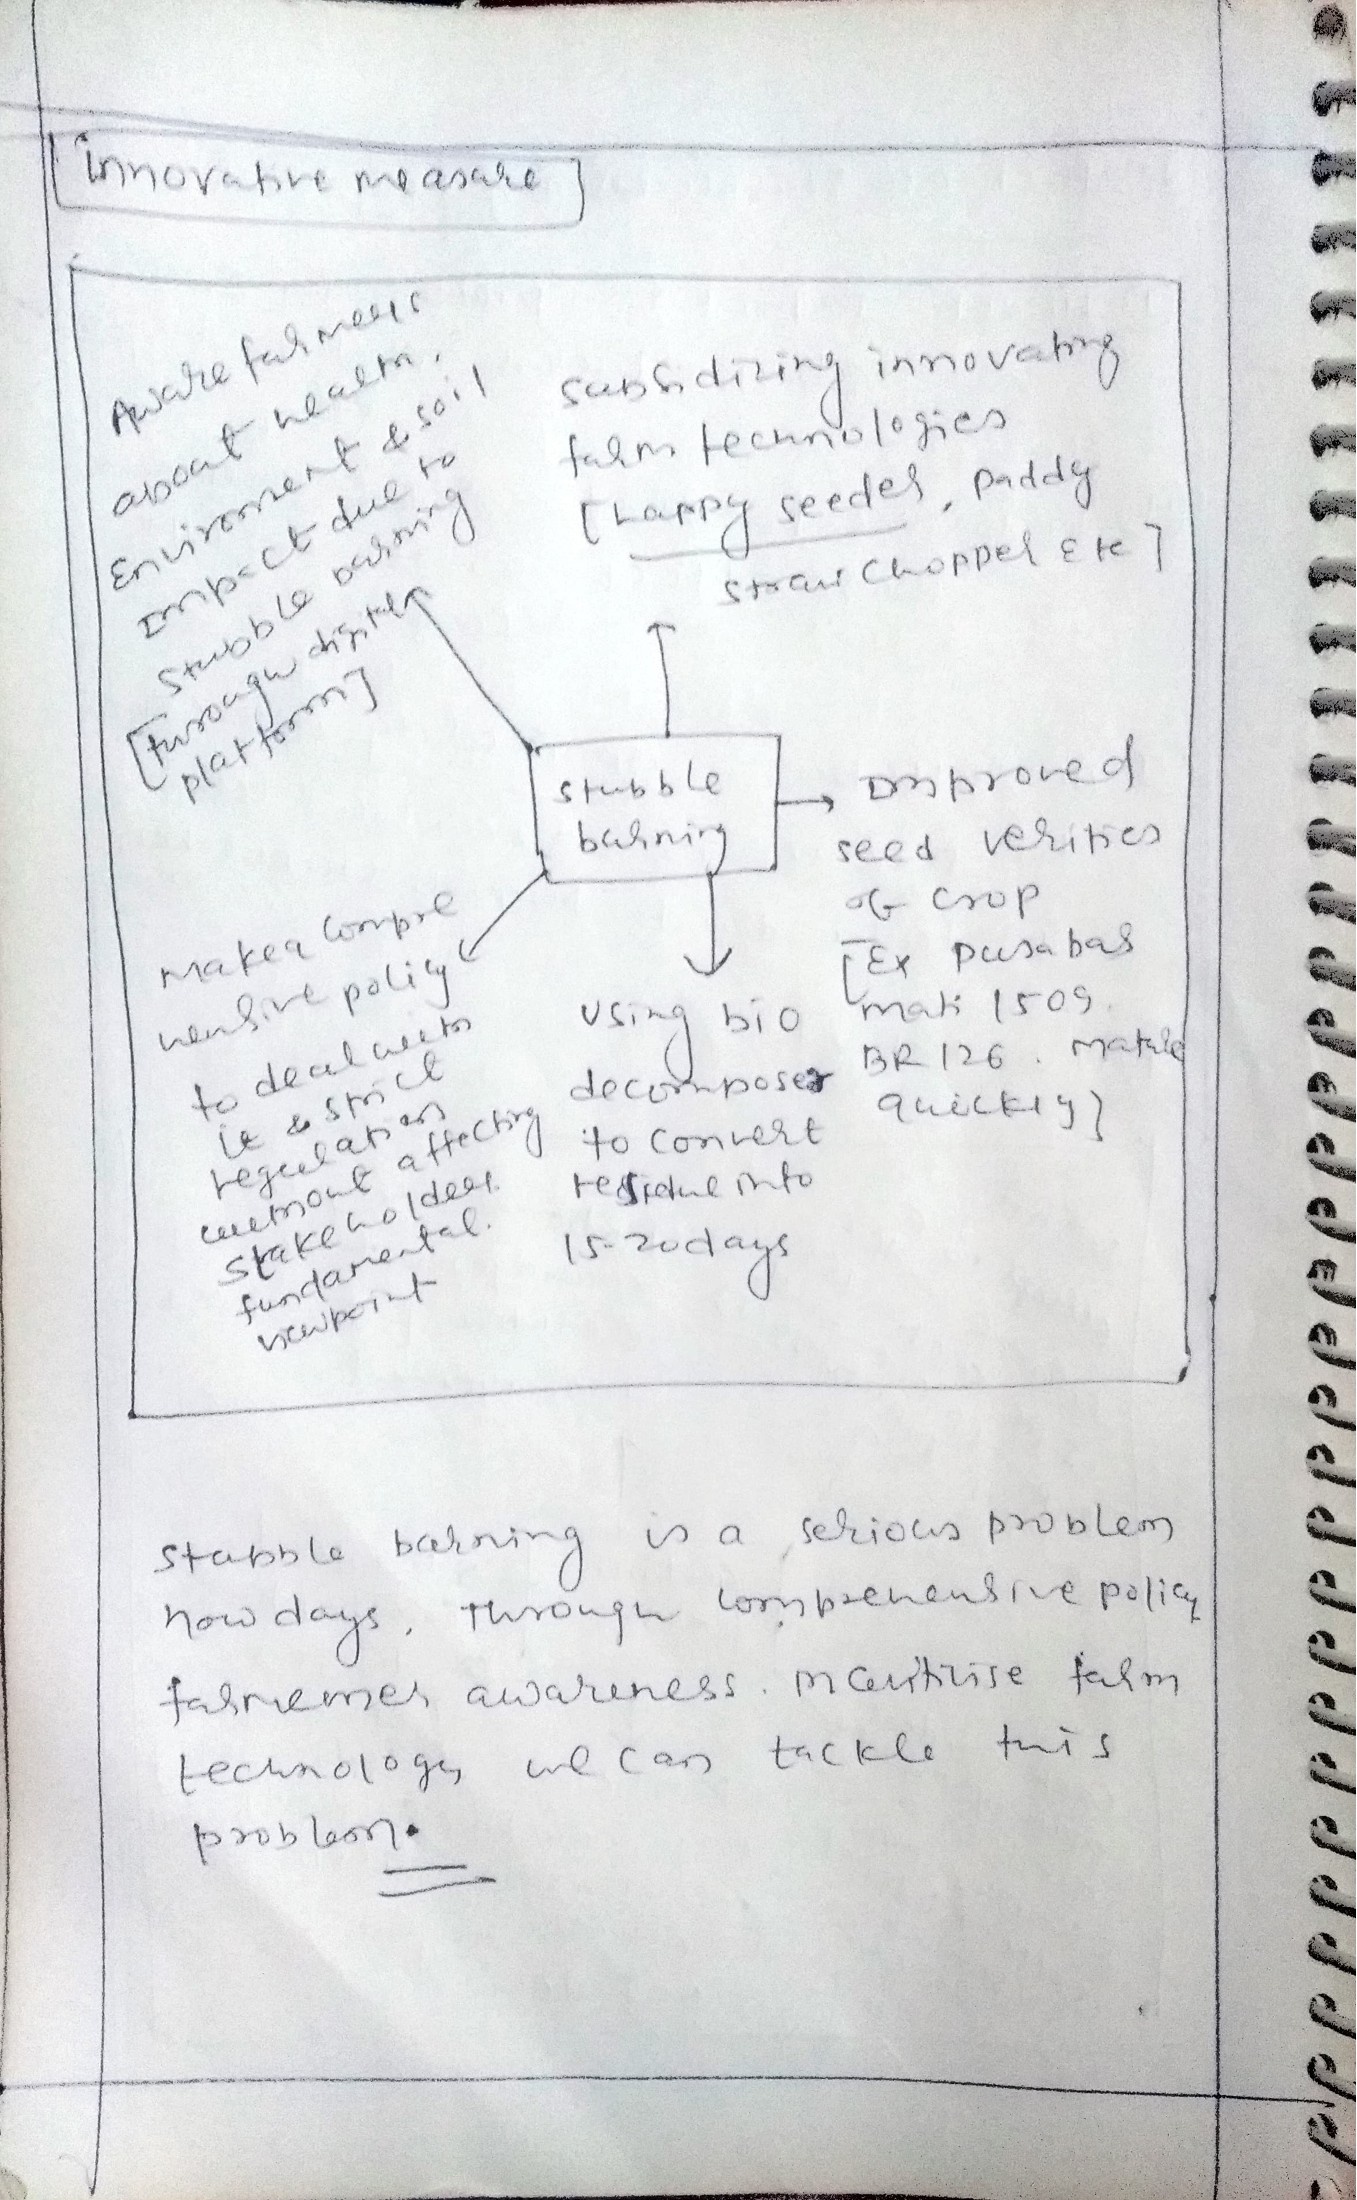 [innovative measure]
Aware farmers
about health,
Environment & soil
Impact due to
stubble burning
[through digital
platform]
subsidizing innovating
farm technologies
[happy seeder, paddy
straw chopper Etc]
stubble
burning
Improved
seed verities
of crop
[Ex pusa bas
mati 1509.
BR 126. mature
quickly]
using bio
decomposer
to convert
residue into
15-20 days
make a compre
hensive policy
to deal with
it & strict
regulation
without affecting
stakeholders
fundamental
viewpoint
stubble burning is a serious problem
now days, through comprehensive policy
awareness. farm
technology we can tackle this
problem.